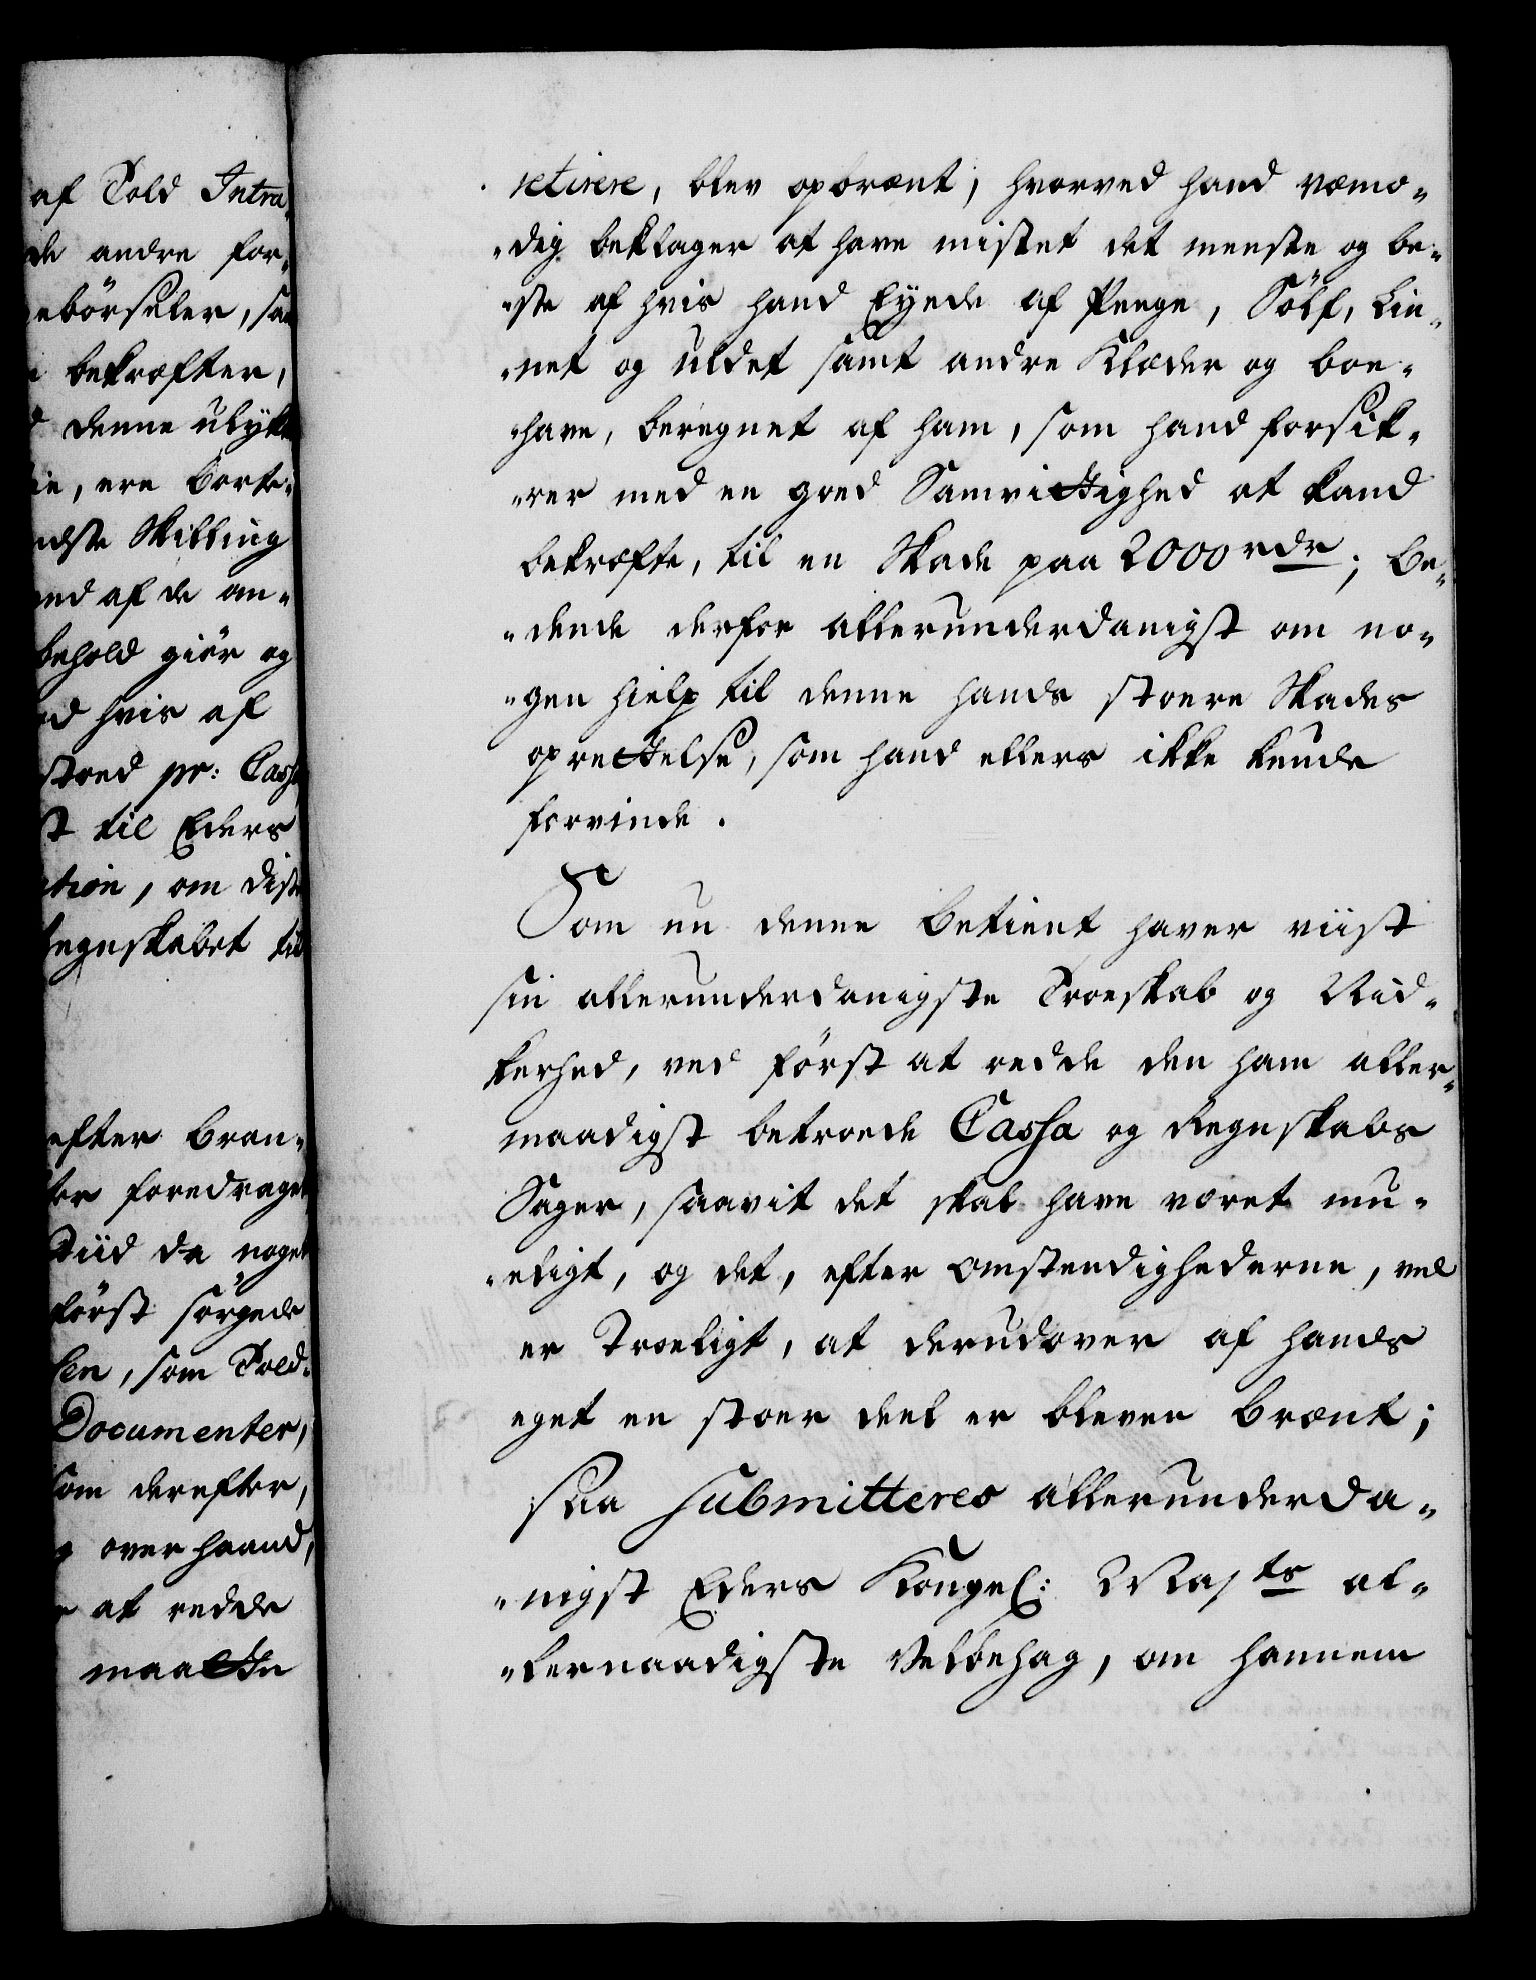 af Told Intra-
de andre for-
ebörseler, saa
bekræfter,
denne ulykke
ie, ere borte-
idste Skilling
end af de an-
behold giör og
ed hvis af
stoed pr: Cassa
st til Eders
ation, om disse
Regnskabet til
efter bran-
ter foredraget
Tiid da noget
först sörgede
sen, som Told-
Documenter,
som derefter,
over haand,
at redde
maatte
retirere, blev opbrænt, hvorved hand væmo-
-dig beklager at have mistet det meeste og be-
-ste af hvis hand Eyede af Penge, Sölf, Lin-
-net og uldet samt andre Klæder og boe-
-have, beregnet af ham, som hand forsik-
-rer med en goed Samvittighed at kand
bekræfte, til en Skade paa 2000 rdr; be-
-dende derfor allerunderdanigst om no-
-gen hielp til denne hands stoere Skades
oprettelse, som hand ellers ikke kunde
forvinde.
Som nu denne betient haver viist
sin allerunderdanigste Troeskab og Nid-
kerhed, ved först at redde den ham aller-
naadigst betroede Cassa og Regnskabs
Sager, saavit det skal have været mu-
-eligt, og det, efter omstendighederne, vel
er Troeligt, at derudover af hands
eget en stoer deel er bleven brænt;
saa submitteres allerunderda-
-nigst Eders Kongel: Majts al-
-lernaadigste Velbehag, om hannem